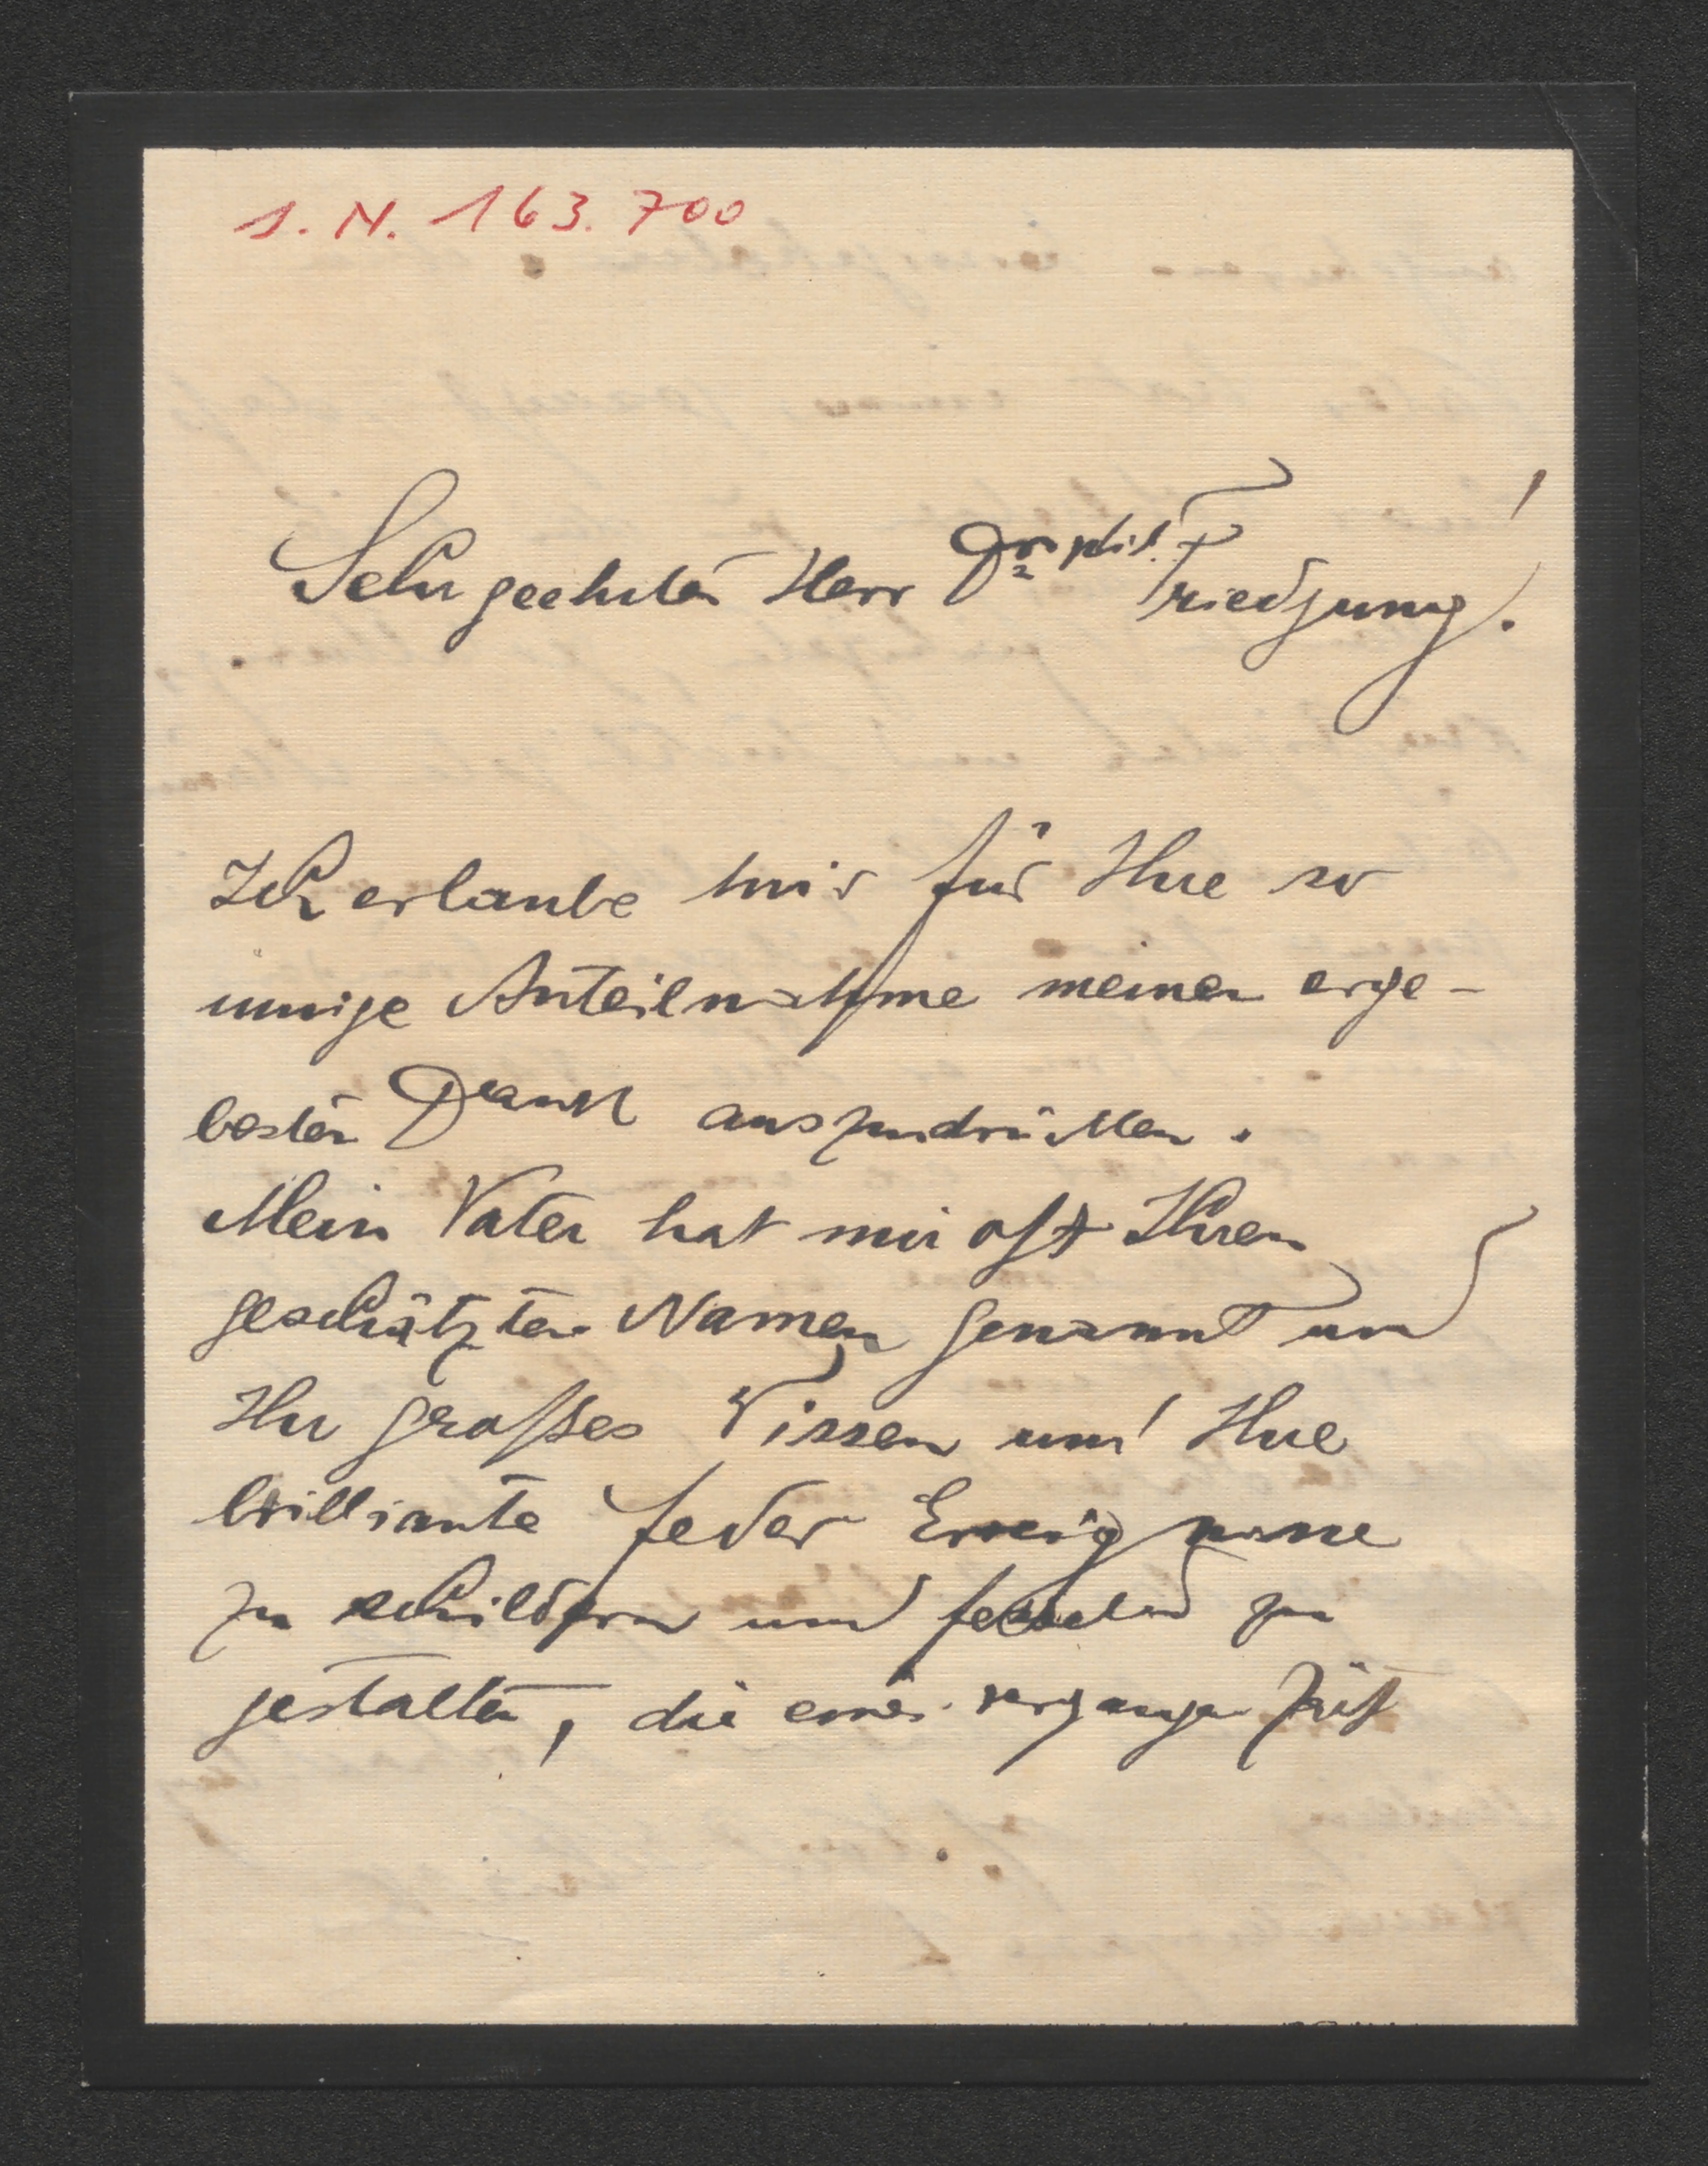 I. N. 163.700
Sehr geehrter Herr Dr. phil. Friedjung!
Ich erlaube mir für Ihre so
innige Anteilnahme meinen erge-
besten Dank auszudrücken.
Mein Vater hat mir oft Ihren
geschätzten Namen genannt und
Ihr großes Wissen und Ihre
brilliante Feder Ereignisse
zu schildern und fesselnd zu
gestalten, die einer vergangen Zeit